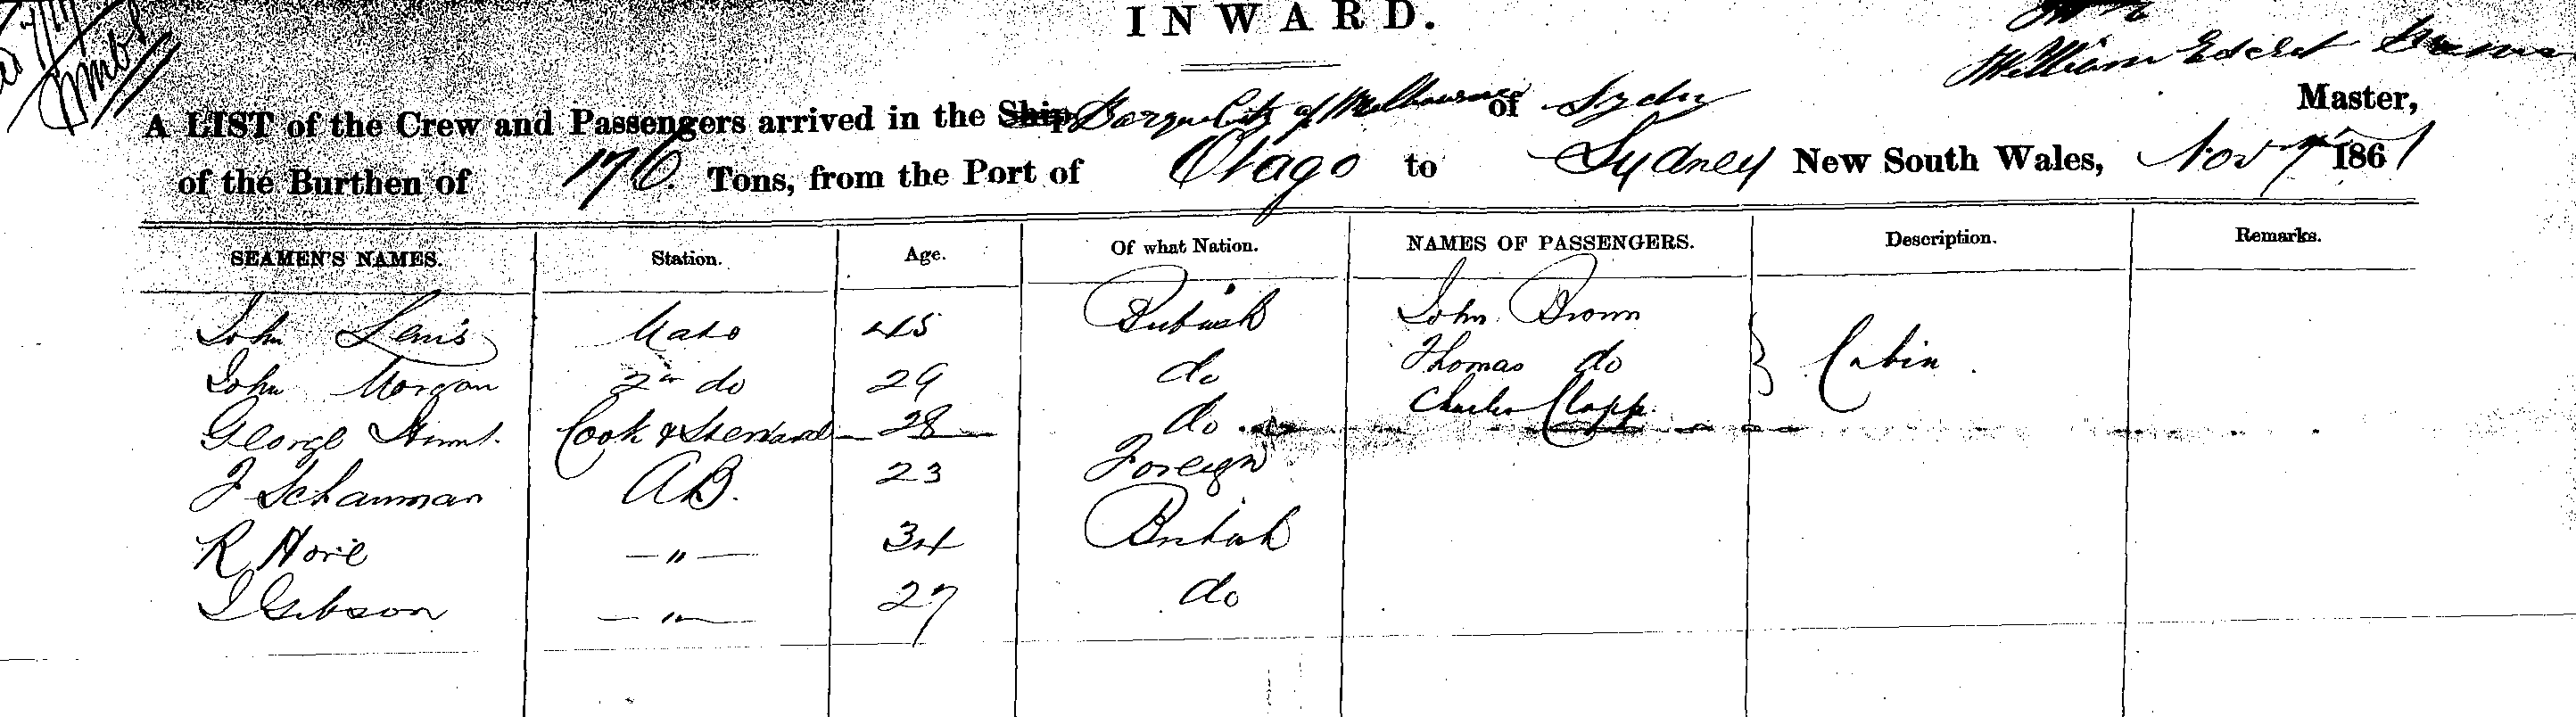 INWARD.
William Edclet
A LIST of the Crew and Passengers arrived in the Ship Barque City of Melbourne of Sydney Master,
of the Burthen of 176 Tons, from the Port of Otago to Sydney New South Wales, Nov 7th 1861
SEAMEN'S NAMES. Station. Age. Of what Nation. NAMES OF PASSENGERS. Description. Remarks.
John Lewis Mate 45 British John Brown
John Morgan 2nd do 29 do Thomas do Cabin
George Cook & Steward 28 do Charles Clapp
J Schauman AB. 23 Foreign
R Hovie — " — 34 British
J Gibson — " — 27 do